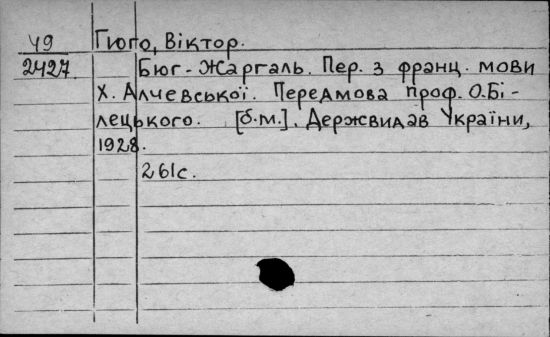 49 Гюго, Віктор.
2427 Бюг-Жаргаль. Пер. з франц. мови
Х. Алчевської. Передмова проф. О.Бі-
лецького. [б.м.]. Держвидав України,
1928.
261с.